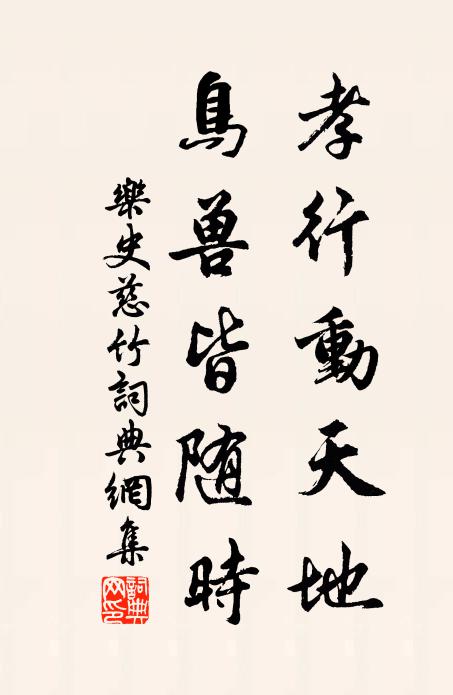 孝行動天地
鳥兽皆随時
樂史慈竹詞典網集
詞典
网印